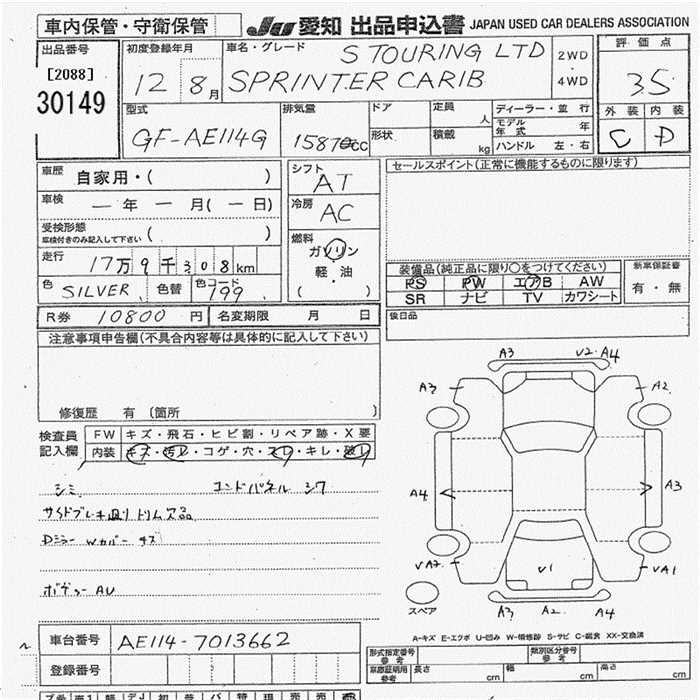 車内保管・守衛保管
JU 愛知 出品申込書 JAPAN USED CAR DEALERS ASSOCIATION
出品番号
[2088]
30149
初度登録年月
12 8月
車名・グレード
S TOURING LTD
SPRINTER CARIB
2WD
4WD
評価点
35
外装 内装
C D
型式
GF-AE114G
排気量
1587cc
ドア
形状
定員 人
積載 kg
ディーラー・並行
モデル年式 年
ハンドル 左・右
車歴 自家用・( )
車検 — 年 — 月(— 日)
受検形態
車検付きのみ記入して下さい ( )
走行 17万9千308km
色 SILVER 色替 色コード 199
R券 10800円 名変期限 月 日
シフト AT
冷房 AC
燃料
ガソリン
軽・油
( )
セールスポイント(正常に機能するものに限ります)
装備品(純正品に限り○をつけてください)
PS PW エアB AW
SR ナビ TV カワシート
新車保証書
有・無
後日品
注意事項申告欄(不具合内容等は具体的に記入して下さい)
修復歴 有 〔箇所 〕
検査員記入欄
FW キズ・飛石・ヒビ割・リペア跡・X要
内装 キズ・汚レ・コゲ・穴・スレ・キレ・破レ
シミ エンドパネル シワ
サイドブレーキ廻り トリム欠品
Dミラー Wカバー キズ
ボデー AU
A3 V2・A4
A3 A2
A4 A3
VA2 V1 VA1
スペア
A3 A2 A4
A-キズ E-エクボ U-凹み W-補修跡 S-サビ C-腐食 XX-交換済
車台番号 AE114-7013662
登録番号
形式指定番号 参考
類別区分番号 参考
車庫証明用 参考 長さ cm 幅 cm 高さ cm